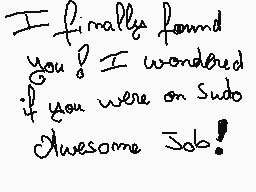 I finally found
you! I wondered
if you were on Sudo
Awesome Job!